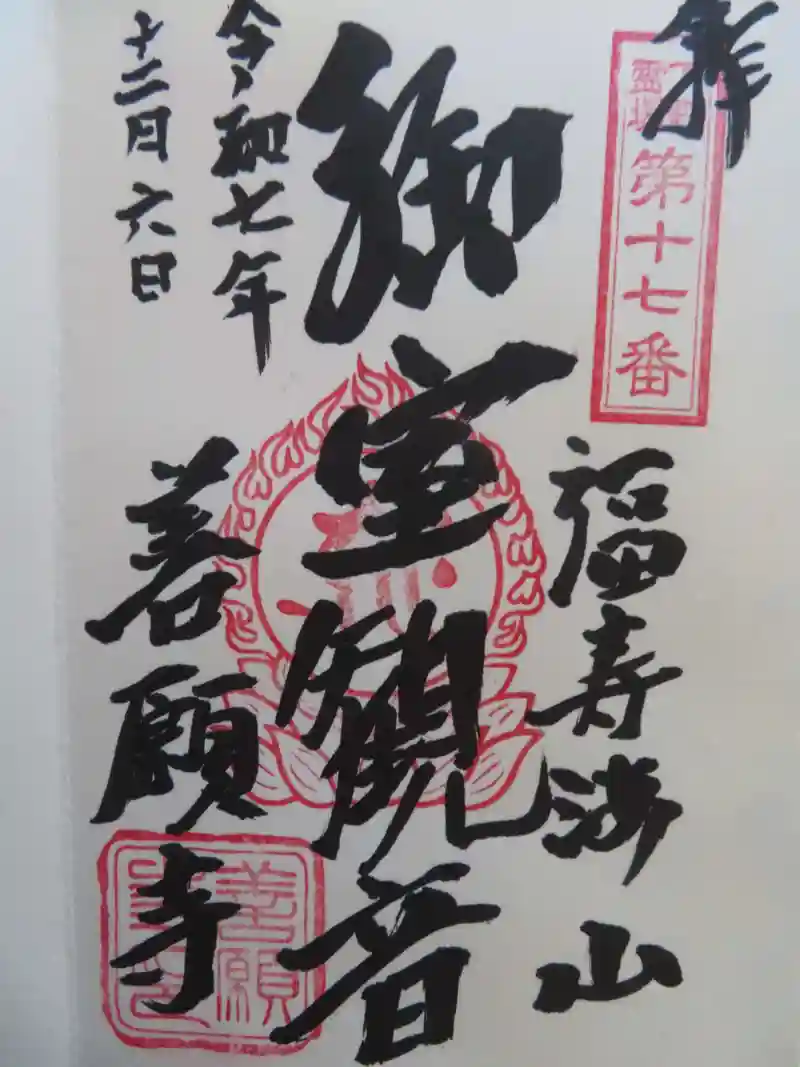 拝
霊場
第十七番
福寿海山
御室観音
令和七年
十二月六日
善願寺
善願